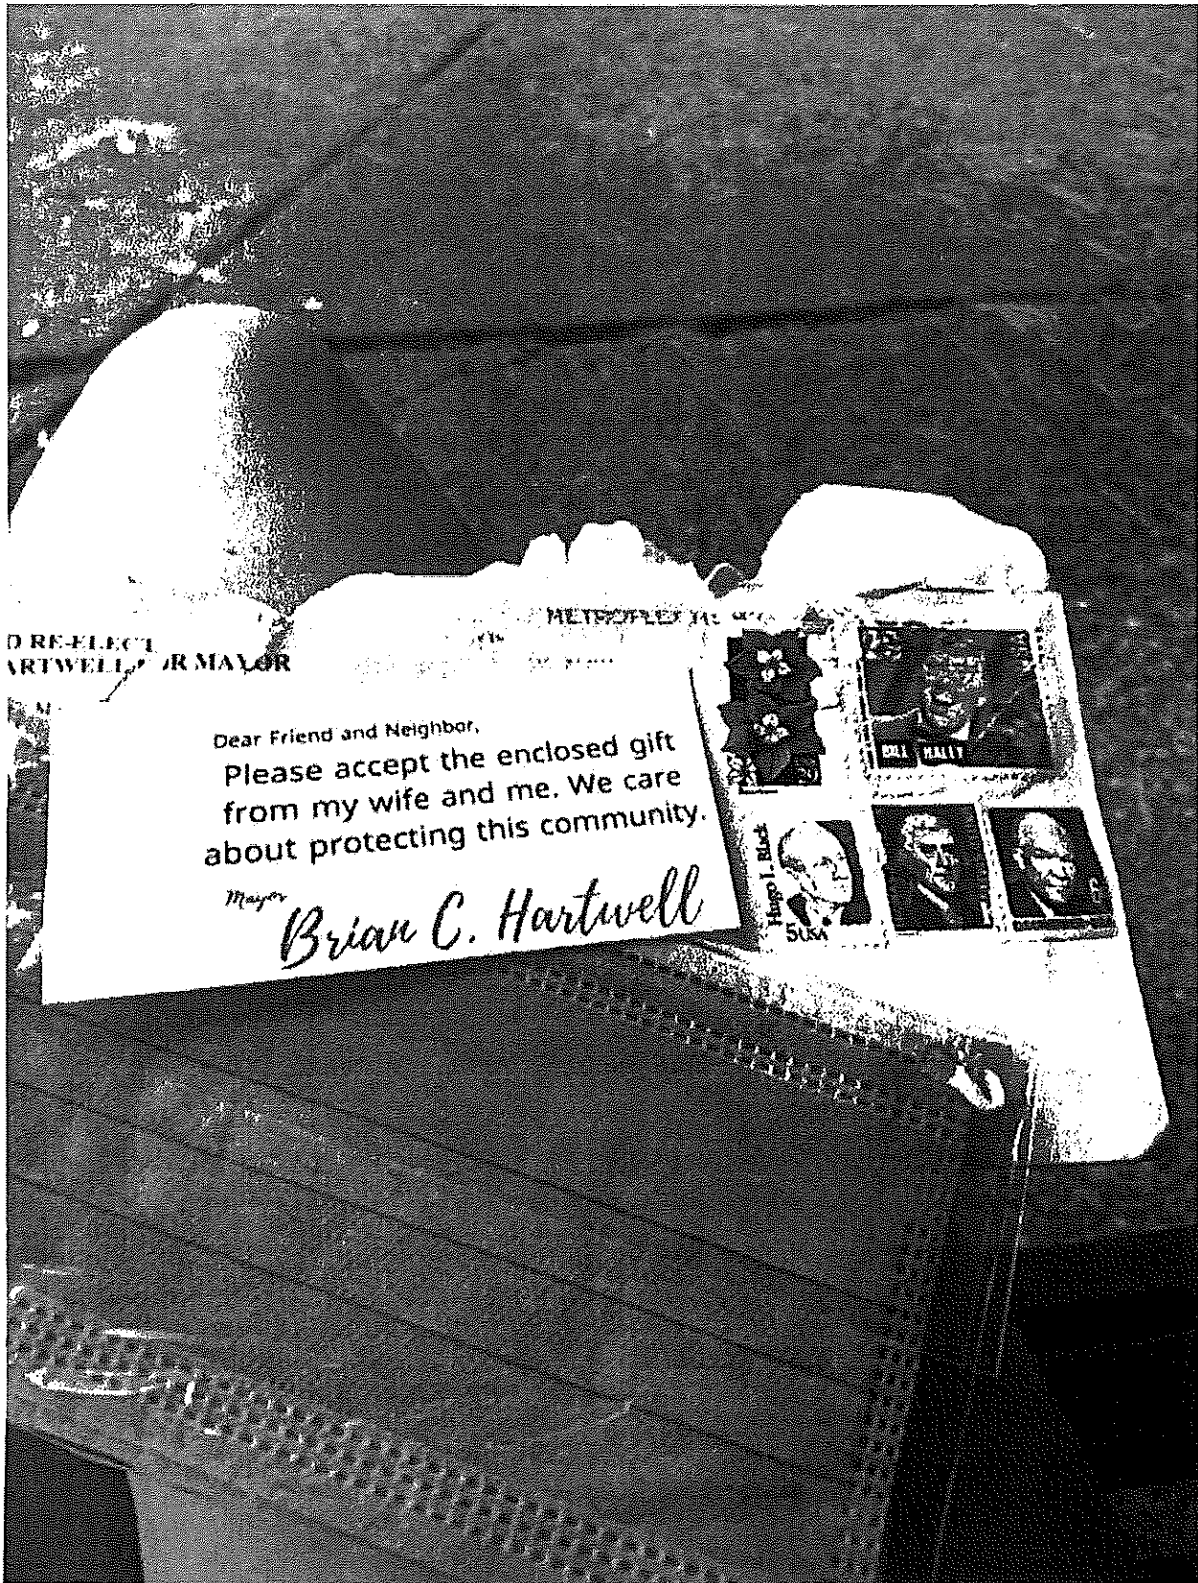 D RE-ELECT
ARTWELL OR MAYOR
METROPLEX
Dear Friend and Neighbor,
Please accept the enclosed gift
from my wife and me. We care
about protecting this community.
Mayor
Brian C. Hartwell
BILL HALEY
Hugo L. Black
5 USA